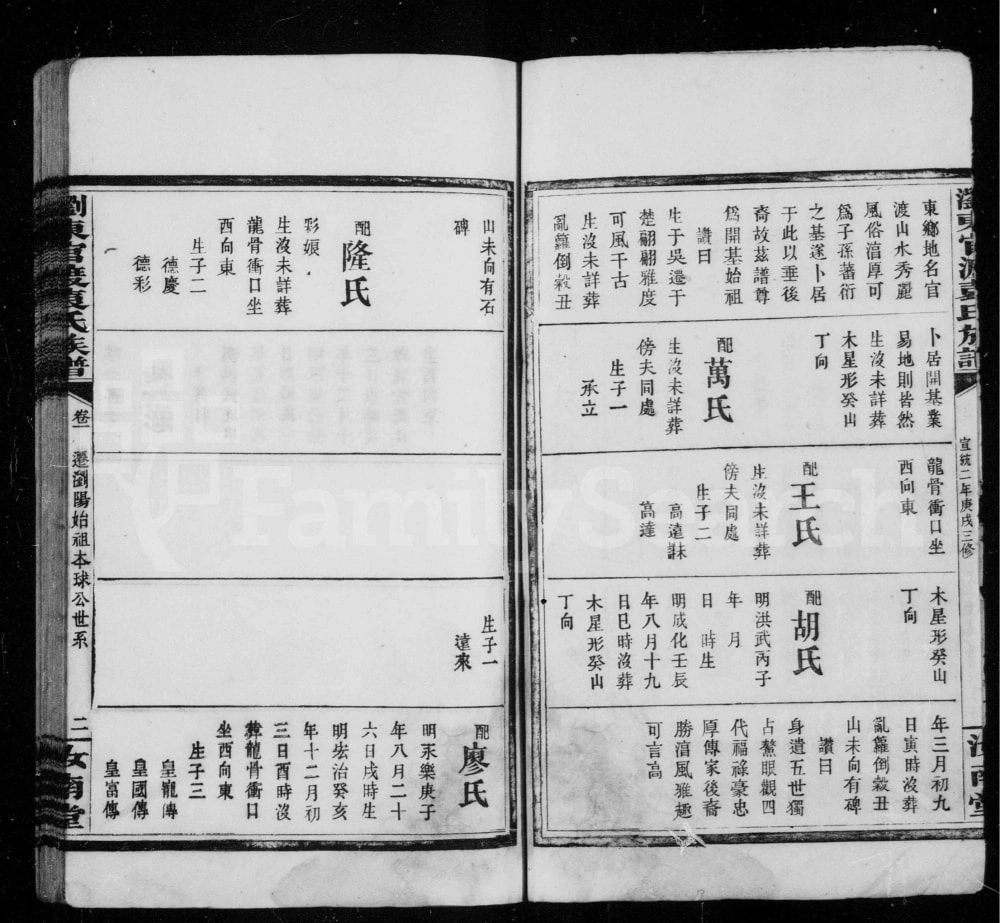 瀏東官渡袁氏族譜
宣統二年庚戌三修
汝南堂
東鄉地名官
渡山水秀麗
風俗湻厚可
爲子孫蕃衍
之基遂卜居
于此以垂後
裔故茲譜尊
爲開基始祖
讚曰
生于吳遷于
楚翩翩雅度
可風千古
生沒未詳葬
亂籮倒穀丑
卜居開基業
易地則皆然
生沒未詳葬
木星形癸山
丁向
配
萬氏
生沒未詳葬
傍夫同處
生子一
承立
龍骨衝口坐
西向東
配
王氏
生沒未詳葬
傍夫同處
生子二
高遠
高達
木星形癸山
丁向
配
胡氏
明洪武丙子
年 月
日 時生
明成化壬辰
年八月十九
日巳時沒葬
木星形癸山
丁向
年三月初九
日寅時沒葬
亂籮倒穀丑
山未向有碑
讚曰
身遺五世獨
占鰲眼觀四
代福祿豪忠
厚傳家後裔
勝湻風雅趣
可言高
山未向有石
碑
配
隆氏
彩娘
生沒未詳葬
龍骨衝口坐
西向東
生子二
德慶
德彩
生子一
遠來
配
廖氏
明永樂庚子
年八月二十
六日戌時生
明宏治癸亥
年十二月初
三日酉時沒
葬龍骨衝口
坐西向東
生子三
皇龍傳
皇國傳
皇富傳
瀏東官渡袁氏族譜
卷一
遷瀏陽始祖本球公世系
二
汝南堂
FamilySearch